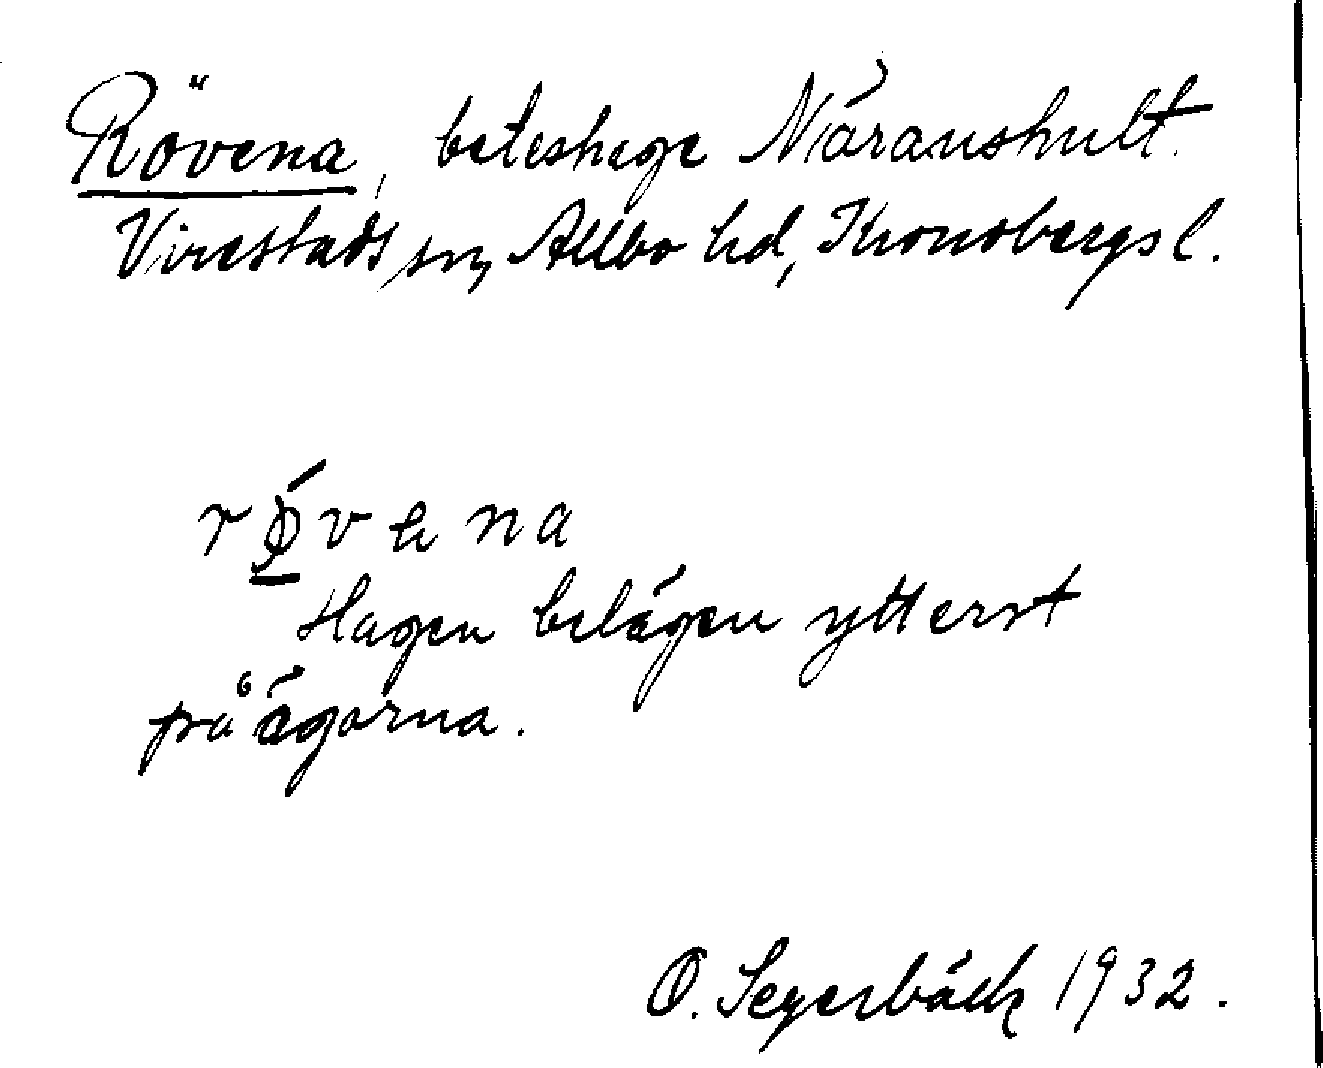 Rövena, beteshage Näranshult.
Virestads sn, Allbo hd, Kronobergs l.
rǿ̱vena
Hagen belägen ytterst
på ägorna.
O. Segerbäck 1932.